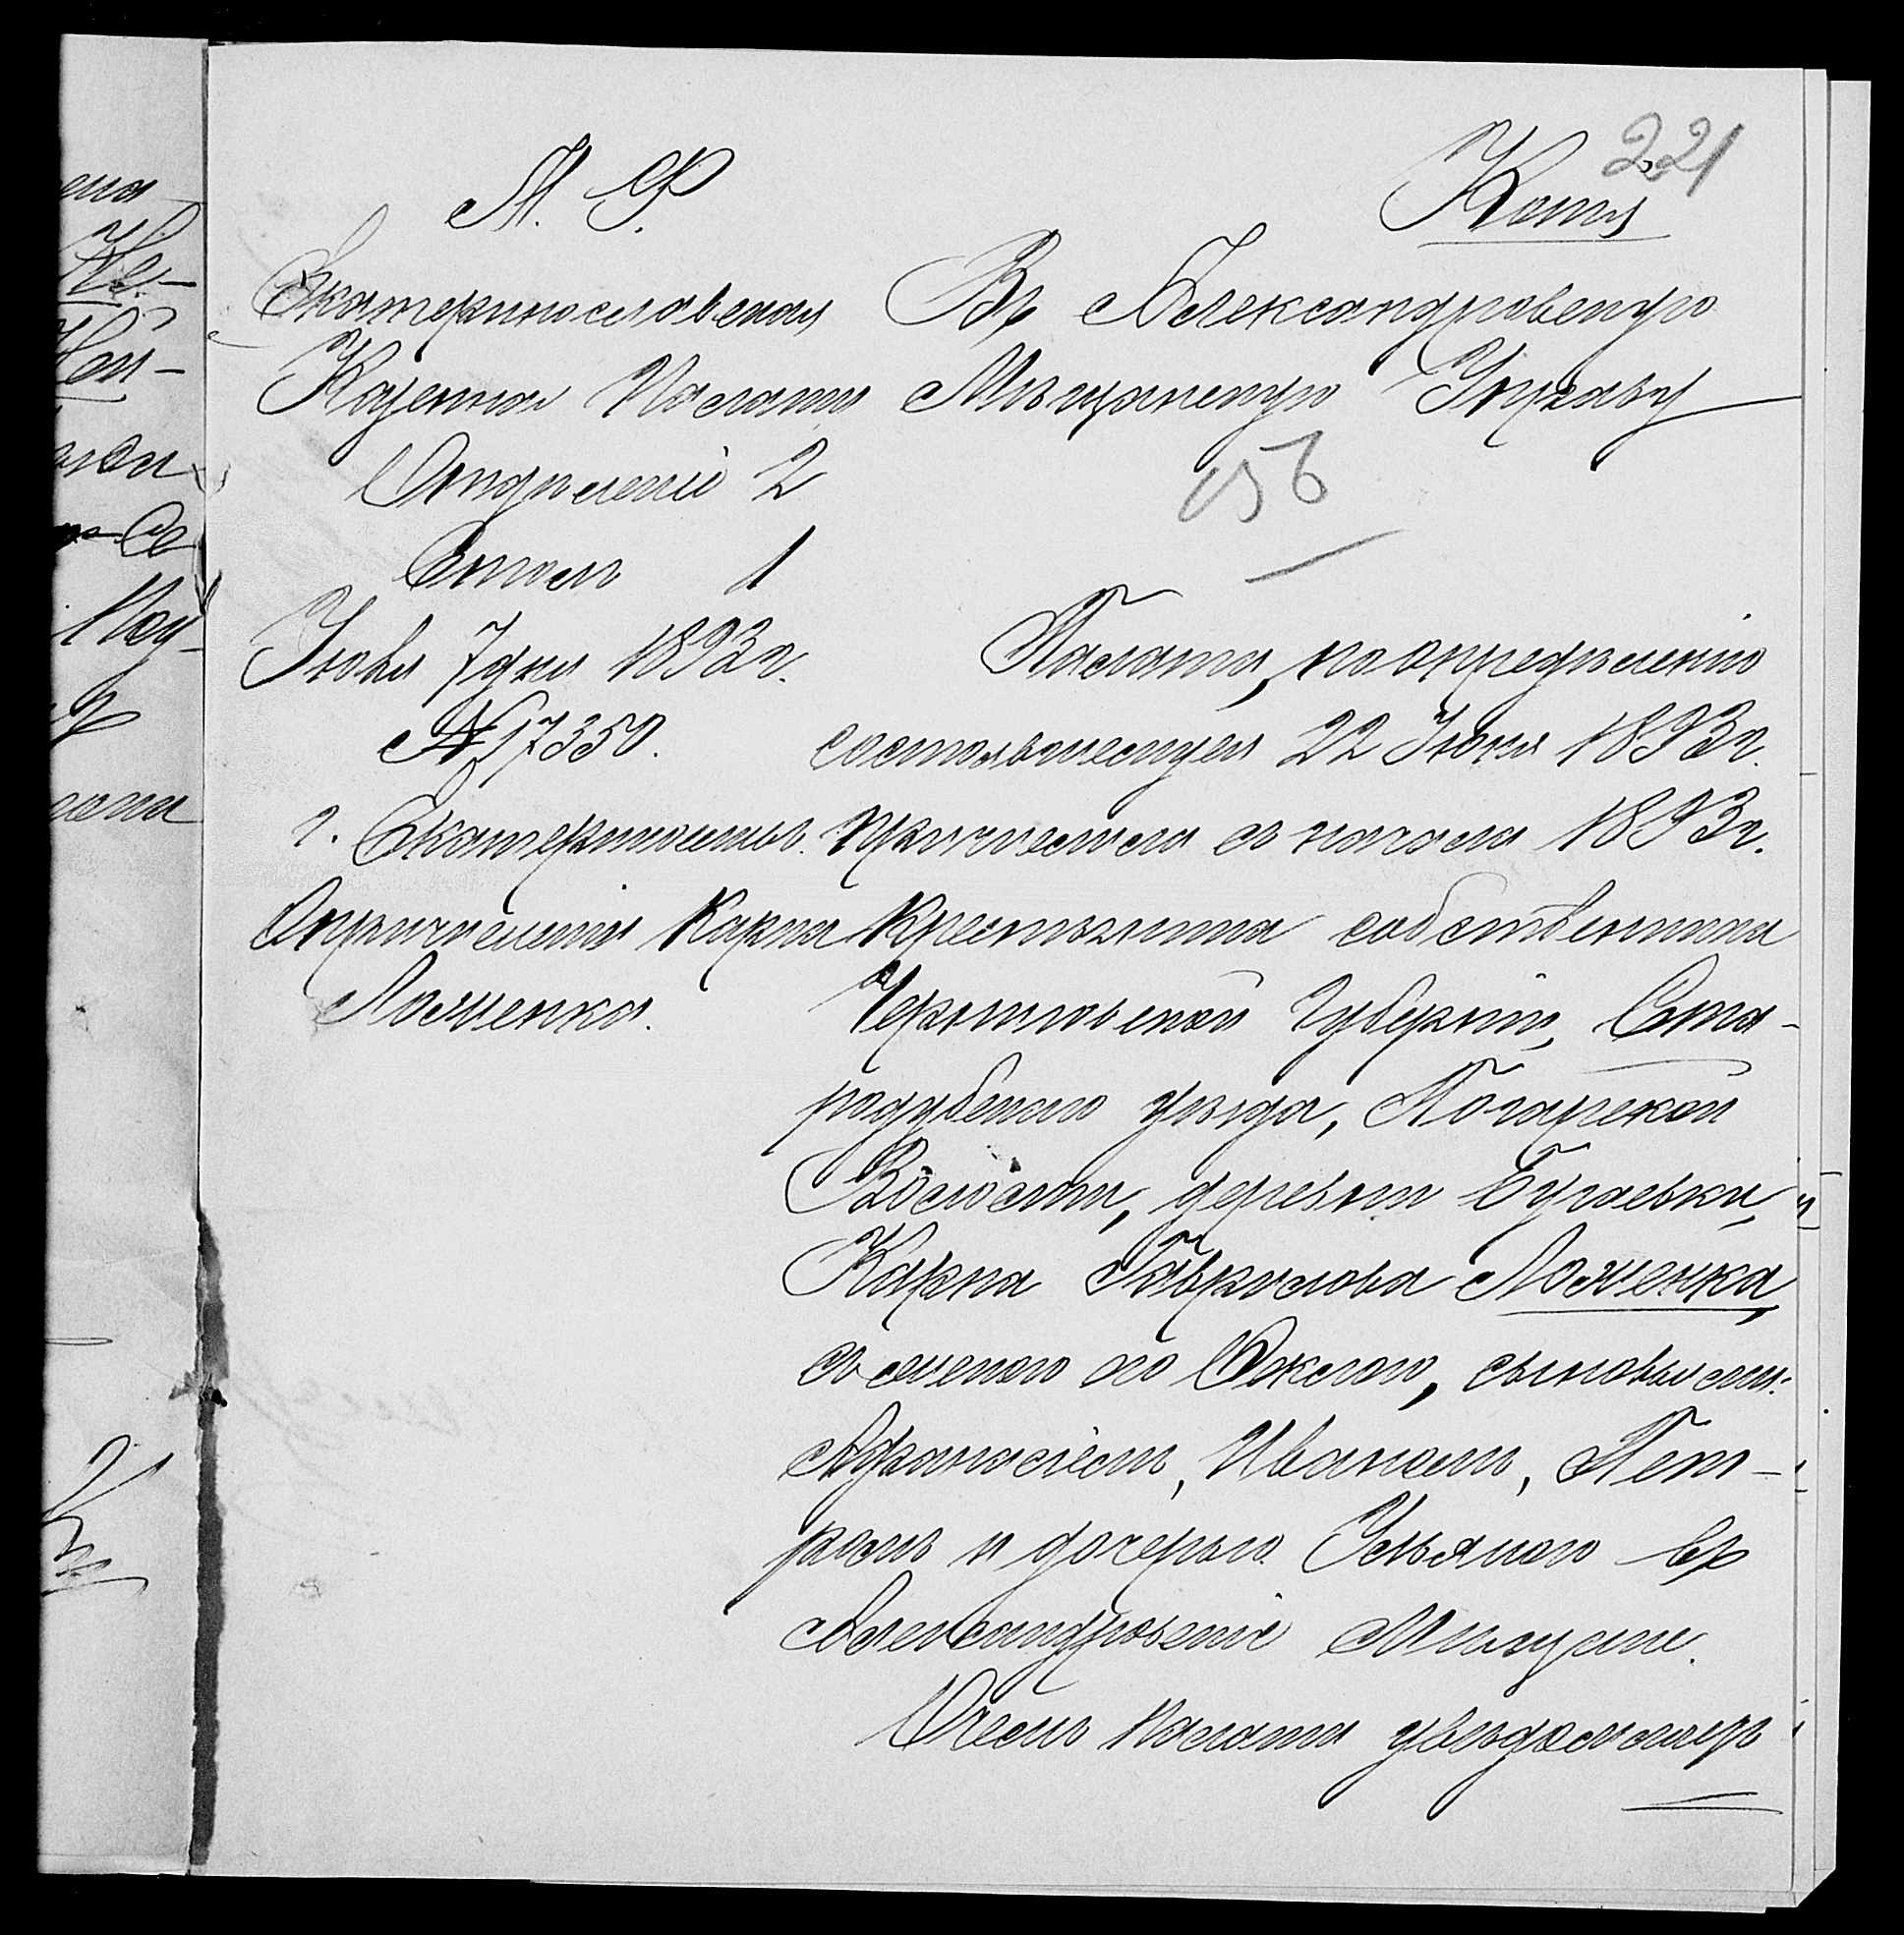 221
Копія
М. Ф.
Екатеринославская
Казенная Палата
Отдѣленіе 2
Столъ 1
Іюля 7 дня 1893 г.
№ 17350.
г. Екатеринославъ.
О причисленіи Карпа
Ломненка.
Въ Александровскую
Мѣщанскую Управу
156
Палата, по опредѣленію
состоявшемуся 22 Іюня 1893 г.
причислила съ начала 1893 г.
крестьянина собственника
Черниговской Губерніи, Ста-
родубскаго уѣзда, Погарской
Волости, деревни Бугаевки,
Карпа Гаврилова
съ женою его Феклою, сыновьями:
Афанасіемъ, Иваномъ, Пет-
ромъ и дочерью Ульяною въ
Александровскіе Мѣщане.
О чемъ Палата увѣдомляетъ